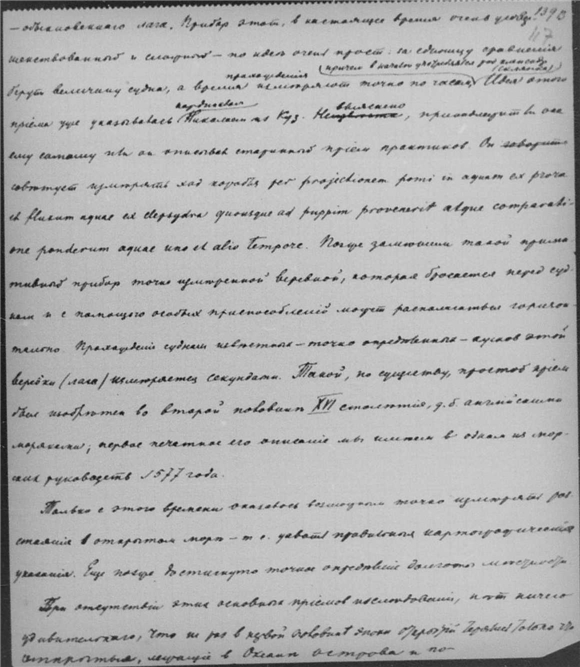 1390
47
— обыкновеннаго лага. Прибор этот, в настоящее время очень усовер-
шенствованный и сложный — по идее очень прост: за единицу сравнения
прохождения (причем в начале
берут величину судна, а время измеряют точно по часам. Идея этого
выяснено
приема уже указывалась Николаем из Куз. Неизвестно, принадлежит ли она
ему самому или он описывал старинный прием практиков. Он
советует измерять ход корабля per projectionem pomi in aquam ex prora
et fluxum aquae ex clepsydra quousque ad puppim provenerit atque comparati-
one ponderum aquae uno et alio tempore. Позже заменили такой прими-
тивный прибор точно измеренной веревкой, которая бросается перед суд-
ном и с помощью особых приспособлений может располагаться горизон-
тально. Прохождение судном известных — точно определенных — узлов этой
веревки (лага) измеряется секундами. Такой, по существу, простой прием
был изобретен во второй половине XVI столетия, д.б. английскими
моряками; первое печатное его описание мы имеем в одном из мор-
ских руководств 1577 года.
Только с этого времени оказалось возможным точно измерять рас-
стояния в открытом море — т.е. давать правильныя картографическия
указания. Еще позже достигнуто точное определение долготы местности
При отсутствии этих основных приемов изследования, нет ничего
удивительнаго, что не раз в первой половине эпохи открытий терялись только что
открытые, лежащие в Океане острова и по-